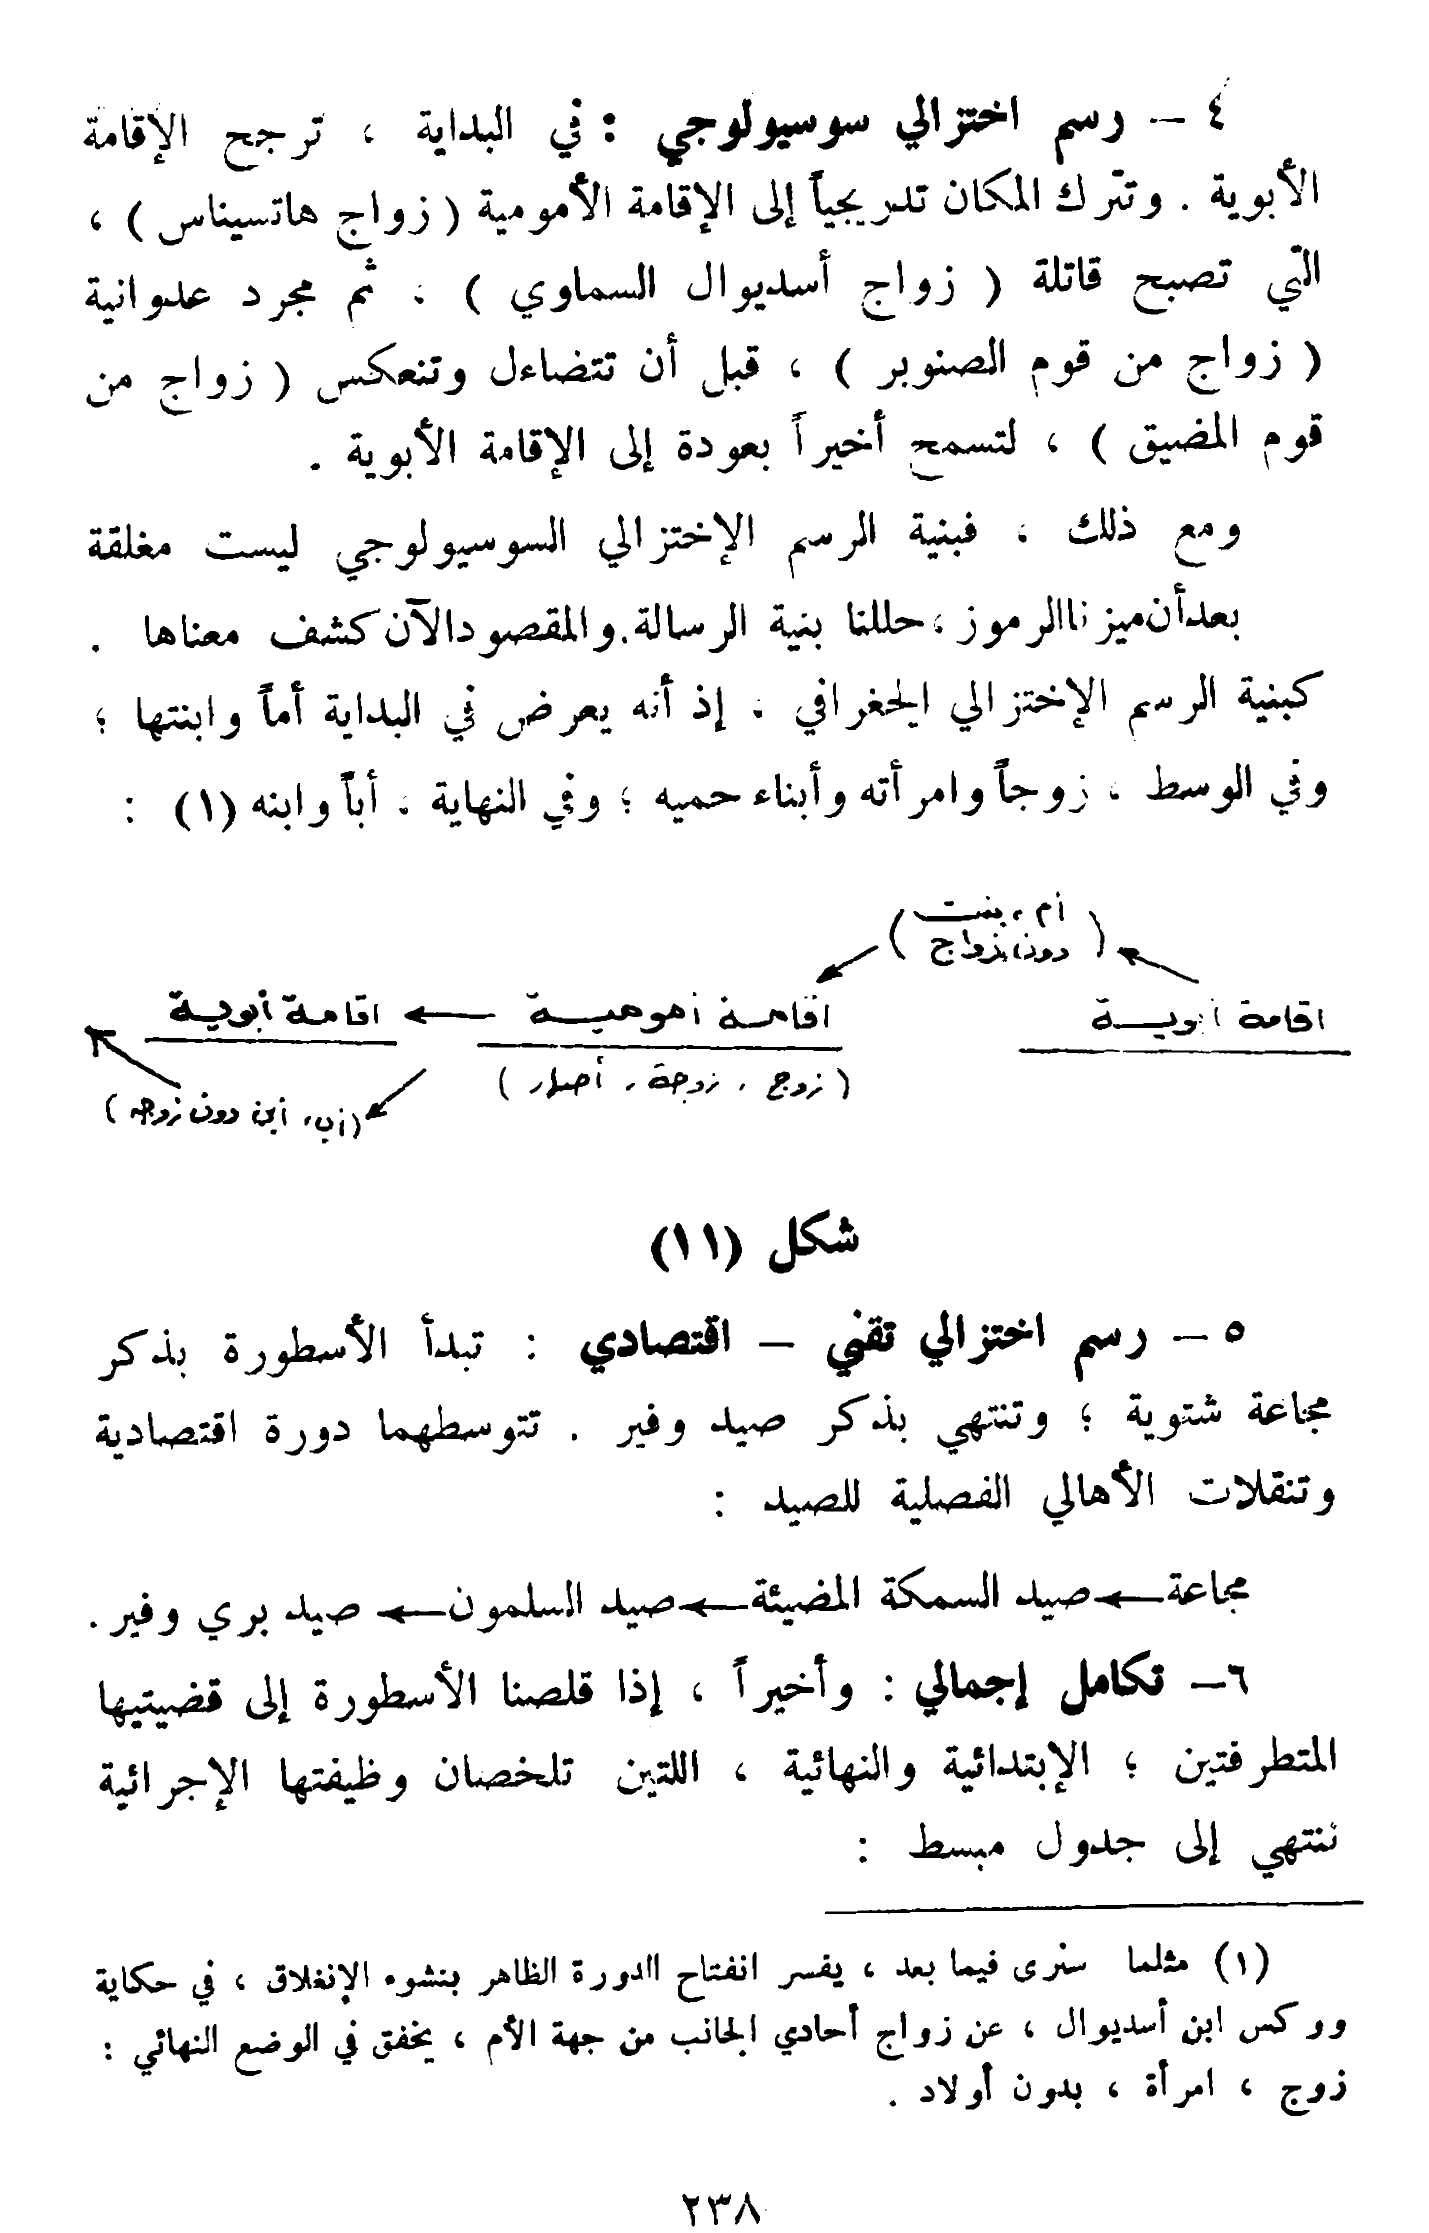 ٤ – رسم اختزالي سوسيولوجي : في البداية ، ترجح الإقامة
الأبوية . وتترك المكان تدريجياً إلى الإقامة الأمومية ( زواج هاتسيناس ) ،
التي تصبح قاتلة ( زواج أسديوال السماوي ) ، ثم مجرد عدوانية
( زواج من قوم الصنوبر ) ، قبل أن تتضاءل وتنعكس ( زواج من
قوم المضيق ) ، لتسمح أخيراً بعودة إلى الإقامة الأبوية .
ومع ذلك ، فبنية الرسم الإختزالي السوسيولوجي ليست مغلقة
بعدأن‌ميزناالرموز ،حللنا بنية الرسالة.والمقصودالآن كشف معناها .
كبنية الرسم الإختزالي الجغرافي . إذ أنه يعرض في البداية أماً وابنتها ؛
وفي الوسط ، زوجاً وامرأته وأبناء حميه ؛ وفي النهاية ، أباً وابنه (١) :
( أم ، بنت
دون زواج )
اقامة أبوية
اقامة أمومية
اقامة أبوية
( زوج ، زوجة ، أصهار )
(أب، ابن دون زوجه )
شكل (١١)
٥ – رسم اختزالي تقني – اقتصادي : تبدأ الأسطورة بذكر
مجاعة شتوية ؛ وتنتهي بذكر صيد وفير . تتوسطهما دورة اقتصادية
وتنقلات الأهالي الفصلية للصيد :
مجاعة ← صيد السمكة المضيئة ← صيد السلمون ← صيد بري وفير .
٦– تكامل إجمالي : وأخيراً ، إذا قلصنا الأسطورة إلى قضيتيها
المتطرفتين ؛ الإبتدائية والنهائية ، اللتين تلخصان وظيفتها الإجرائية
ننتهي إلى جدول مبسط :
(١) مثلما سنرى فيما بعد ، يفسر انفتاح الدورة الظاهر بنشوء الإنغلاق ، في حكاية
ووكس ابن أسديوال ، عن زواج أحادي الجانب من جهة الأم ، يخفق في الوضع النهائي :
زوج ، امرأة ، بدون أولاد .
٢٣٨